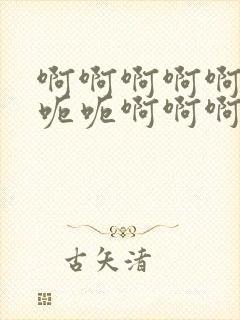 啊啊啊啊啊
呃呃啊啊啊
古矢渚